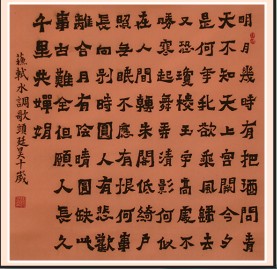 明月幾時有把酒問青
天不知天上宮闕今夕
是何年我欲乘風歸去
又恐瓊樓玉宇高處不
勝寒起舞弄清影何似
在人間轉朱閣低綺戶
照無眠不應有恨何事
長向別時圓人有悲歡
離合月有陰晴圓缺此
事古難全但願人長久
千里共嬋娟
蘇軾水調歌頭廷昊十歲